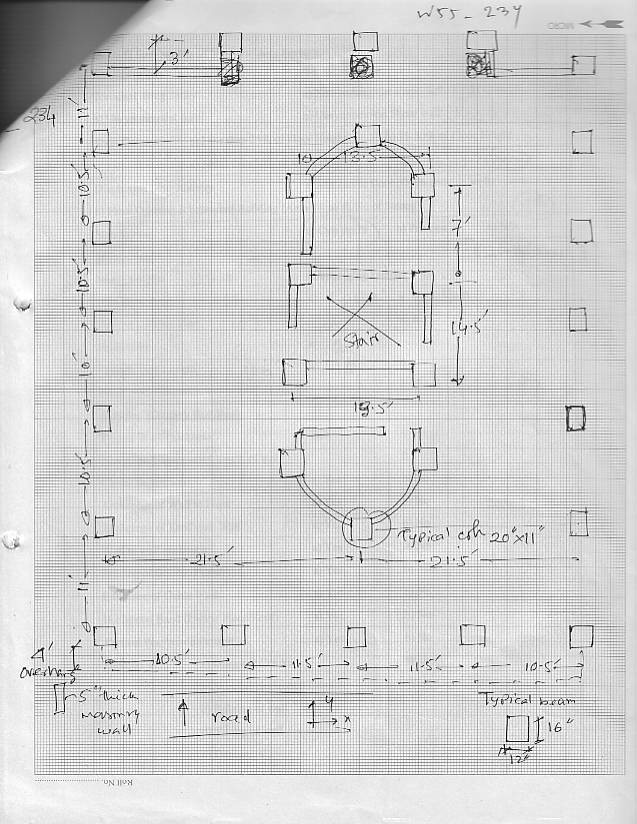 W55 - 234
MICRO
3'
234
11'
10
13.5'
10.5'
7'
10.5'
14.5'
Stair
10'
13.5'
10.5'
Typical col 20"x11"
21.5'
21.5'
11'
4'
overhang
10.5'
11.5'
11.5'
10.5'
5" thick
masonry
wall
road
y
x
Typical beam
16"
12"
Roll No.